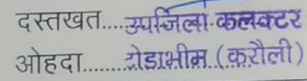 दस्तखत....उपजिला कलक्टर
ओहदा.........टोडाभीम (करौली)